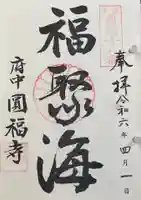 奉拝 令和六年四月一日
福聚海
府中 圓福寺